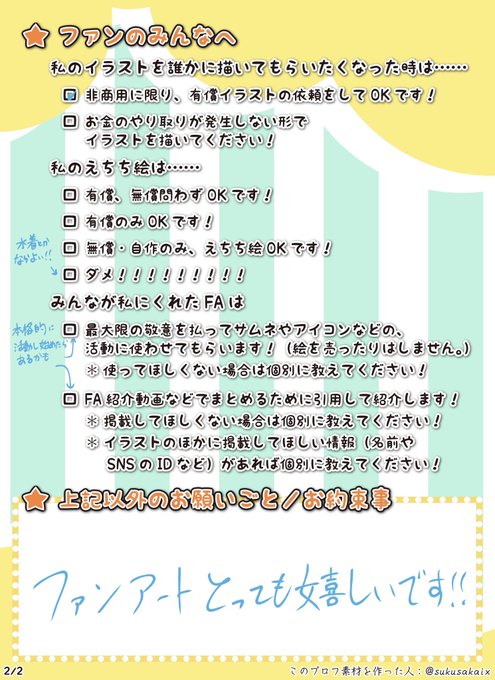 ファンのみんなへ
私のイラストを誰かに描いてもらいたくなった時は……
非商用に限り、有償イラストの依頼をしてOKです！
お金のやり取りが発生しない形で
イラストを描いてください！
私のえちち絵は……
有償、無償問わずOKです！
有償のみOKです！
無償・自作のみ、えちち絵OKです！
水着とか
なかよい!!
ダメ！！！！！！！！！
みんなが私にくれたFAは
本格的に
活動し始めたら
あるかも
最大限の敬意を払ってサムネやアイコンなどの、
活動に使わせてもらいます！（絵を売ったりはしません。）
＊使ってほしくない場合は個別に教えてください！
FA紹介動画などでまとめるために引用して紹介します！
＊掲載してほしくない場合は個別に教えてください！
＊イラストのほかに掲載してほしい情報（名前や
SNSのIDなど）があれば個別に教えてください！
上記以外のお願いごと／お約束事
ファンアートとっても嬉しいです!!
2/2
このプロフ素材を作った人：@sukusakaix